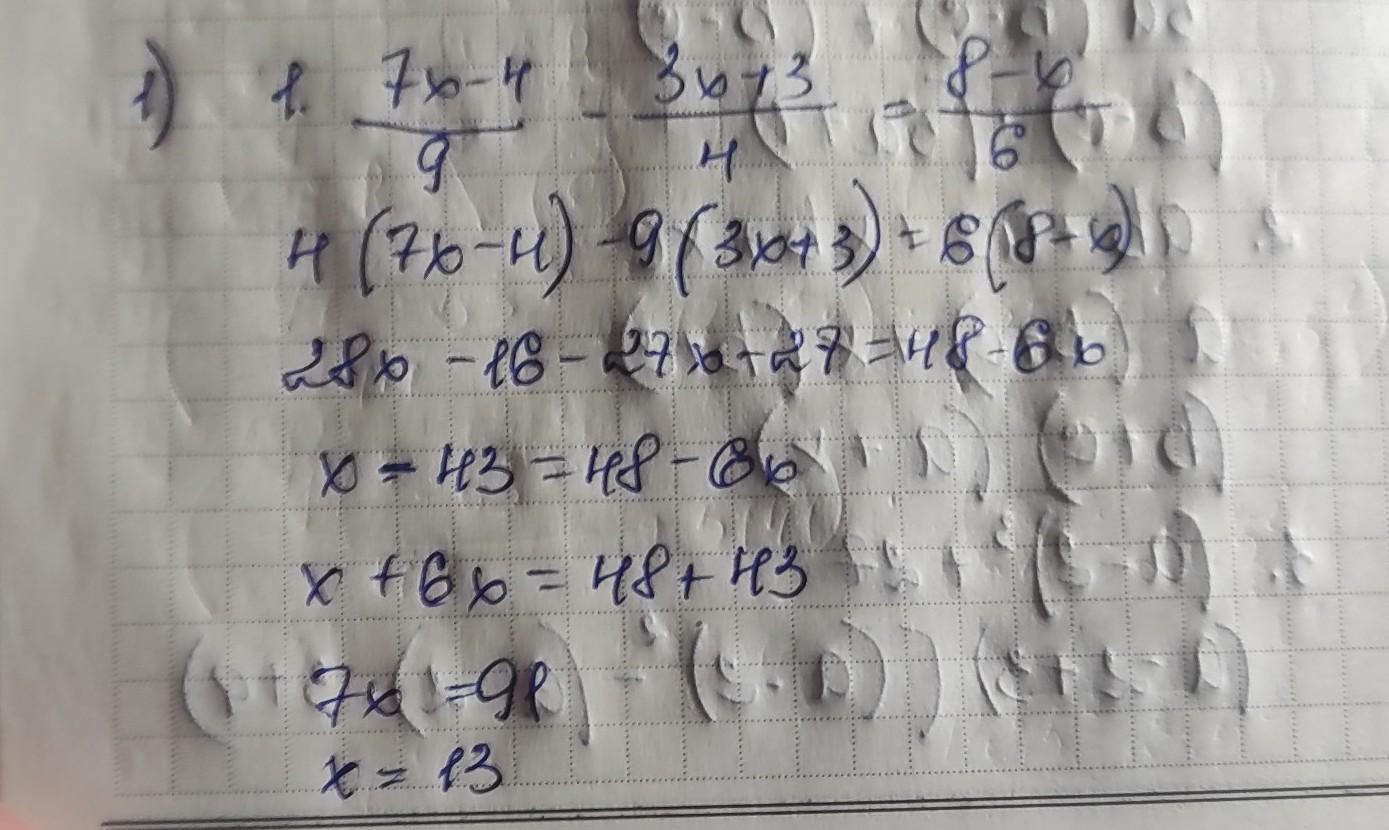 1) 1. (7x-4)/9 - (3x+3)/4 = (8-x)/6
4(7x-4)-9(3x+3)=6(8-x)
28x-16-27x-27=48-6x
x-43=48-6x
x+6x=48+43
7x=91
x=13